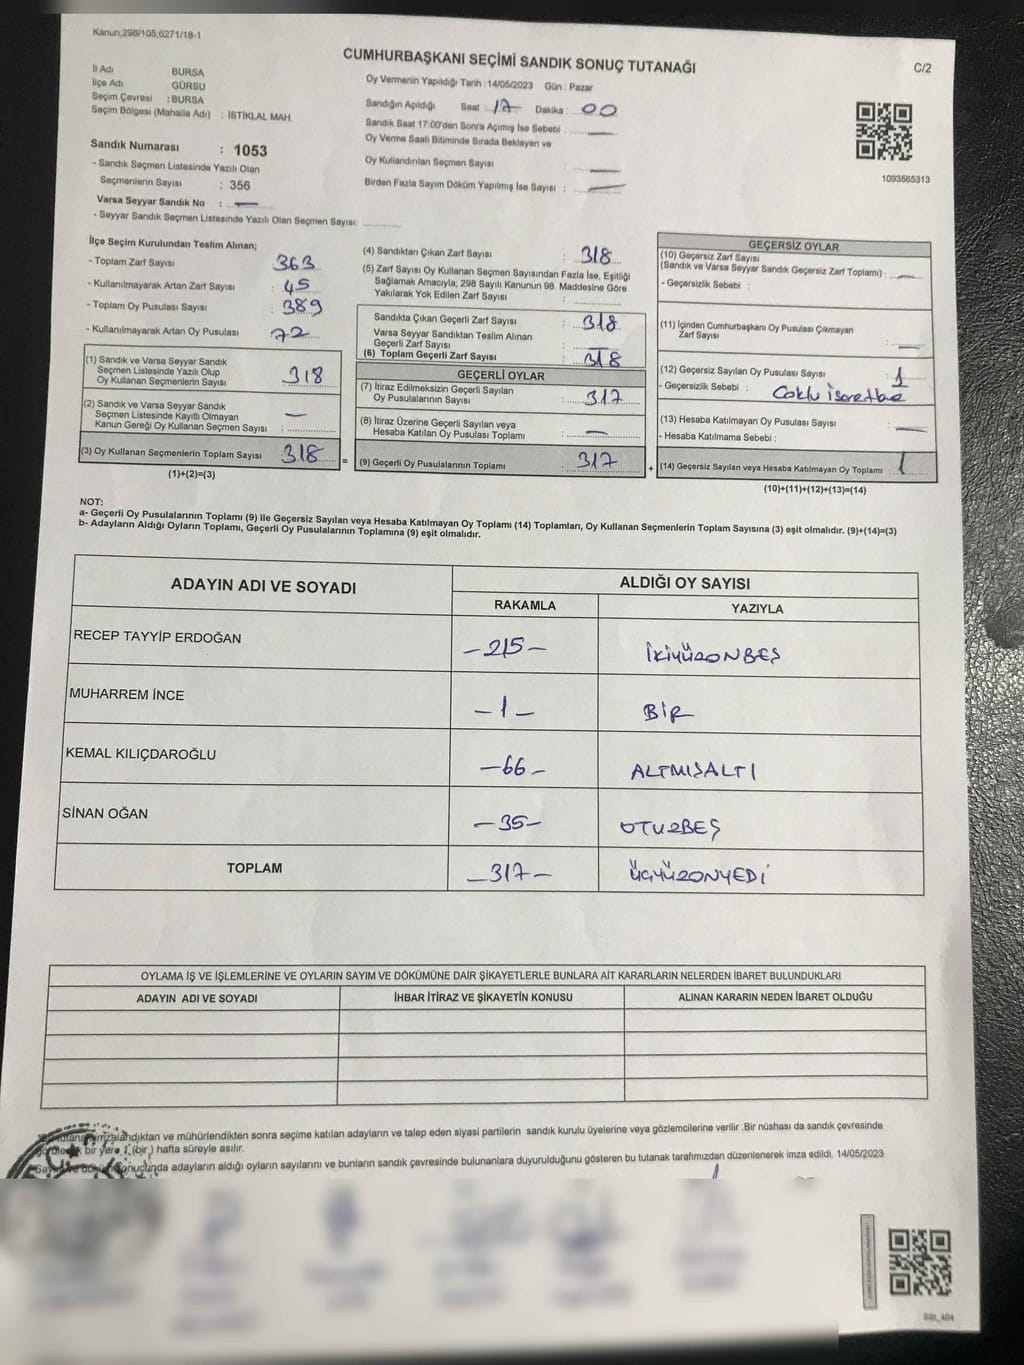 Kanun,298/105;6271/18-1
CUMHURBAŞKANI SEÇİMİ SANDIK SONUÇ TUTANAĞI
C/2
İl Adı : BURSA
İlçe Adı : GÜRSU
Seçim Çevresi : BURSA
Seçim Bölgesi (Mahalle Adı) : İSTİKLAL MAH.
Oy Vermenin Yapıldığı Tarih :14/05/2023 Gün : Pazar
Sandığın Açıldığı Saat : 17 Dakika : 00
Sandık Saat 17:00'den Sonra Açımış İse Sebebi : —
Oy Verme Saati Bitiminde Sırada Bekleyen ve
Oy Kullandırılan Seçmen Sayısı : —
Birden Fazla Sayım Döküm Yapılmış İse Sayısı : —
1093565313
Sandık Numarası : 1053
- Sandık Seçmen Listesinde Yazılı Olan
Seçmenlerin Sayısı : 356
Varsa Seyyar Sandık No : —
- Seyyar Sandık Seçmen Listesinde Yazılı Olan Seçmen Sayısı:
İlçe Seçim Kurulundan Teslim Alınan;
- Toplam Zarf Sayısı : 363
- Kullanılmayarak Artan Zarf Sayısı : 45
- Toplam Oy Pusulası Sayısı : 389
- Kullanılmayarak Artan Oy Pusulası : 72
(1) Sandık ve Varsa Seyyar Sandık
Seçmen Listesinde Yazılı Olup
Oy Kullanan Seçmenlerin Sayısı : 318
(2) Sandık ve Varsa Seyyar Sandık
Seçmen Listesinde Kayıtlı Olmayan
Kanun Gereği Oy Kullanan Seçmen Sayısı : —
(3) Oy Kullanan Seçmenlerin Toplam Sayısı : 318
(1)+(2)=(3)
(4) Sandıktan Çıkan Zarf Sayısı : 318
(5) Zarf Sayısı Oy Kullanan Seçmen Sayısından Fazla İse, Eşitliği
Sağlamak Amacıyla; 298 Sayılı Kanunun 98. Maddesine Göre
Yakılarak Yok Edilen Zarf Sayısı :
Sandıkta Çıkan Geçerli Zarf Sayısı : 318
Varsa Seyyar Sandıktan Teslim Alınan
Geçerli Zarf Sayısı : —
(6) Toplam Geçerli Zarf Sayısı : 318
GEÇERLİ OYLAR
(7) İtiraz Edilmeksizin Geçerli Sayılan
Oy Pusulalarının Sayısı : 317
(8) İtiraz Üzerine Geçerli Sayılan veya
Hesaba Katılan Oy Pusulası Toplamı : —
= (9) Geçerli Oy Pusulalarının Toplamı : 317
GEÇERSİZ OYLAR
(10) Geçersiz Zarf Sayısı
(Sandık ve Varsa Seyyar Sandık Geçersiz Zarf Toplamı) : —
- Geçersizlik Sebebi :
(11) İçinden Cumhurbaşkanı Oy Pusulası Çıkmayan
Zarf Sayısı : —
(12) Geçersiz Sayılan Oy Pusulası Sayısı : 1
- Geçersizlik Sebebi : Çoklu İşaretleme
(13) Hesaba Katılmayan Oy Pusulası Sayısı : —
- Hesaba Katılmama Sebebi :
+ (14) Geçersiz Sayılan veya Hesaba Katılmayan Oy Toplamı : 1
(10)+(11)+(12)+(13)=(14)
NOT:
a- Geçerli Oy Pusulalarının Toplamı (9) ile Geçersiz Sayılan veya Hesaba Katılmayan Oy Toplamı (14) Toplamları, Oy Kullanan Seçmenlerin Toplam Sayısına (3) eşit olmalıdır. (9)+(14)=(3)
b- Adayların Aldığı Oyların Toplamı, Geçerli Oy Pusulalarının Toplamına (9) eşit olmalıdır.
ADAYIN ADI VE SOYADI
ALDIĞI OY SAYISI
RAKAMLA YAZIYLA
RECEP TAYYİP ERDOĞAN -215- İKİYÜZONBEŞ
MUHARREM İNCE -1- BİR
KEMAL KILIÇDAROĞLU -66- ALTMIŞALTI
SİNAN OĞAN -35- OTUZBEŞ
TOPLAM -317- ÜÇYÜZONYEDİ
OYLAMA İŞ VE İŞLEMLERİNE VE OYLARIN SAYIM VE DÖKÜMÜNE DAİR ŞİKAYETLERLE BUNLARA AİT KARARLARIN NELERDEN İBARET BULUNDUKLARI
ADAYIN ADI VE SOYADI İHBAR İTİRAZ VE ŞİKAYETİN KONUSU ALINAN KARARIN NEDEN İBARET OLDUĞU
imzalandıktan ve mühürlendikten sonra seçime katılan adayların ve talep eden siyasi partilerin sandık kurulu üyelerine veya gözlemcilerine verilir .Bir nüshası da sandık çevresinde
bir yere 1 (bir ) hafta süreyle asılır.
adayların aldığı oyların sayılarını ve bunların sandık çevresinde bulunanlara duyurulduğunu gösteren bu tutanak tarafımızdan düzenlenerek imza edildi. 14/05/2023